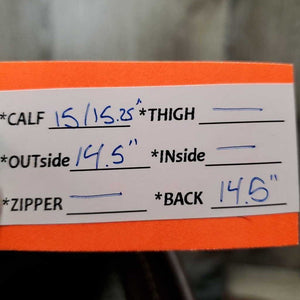 *CALF 15/15.25" *THIGH —
*OUTside 14.5" *INside —
*ZIPPER — *BACK 14.5"